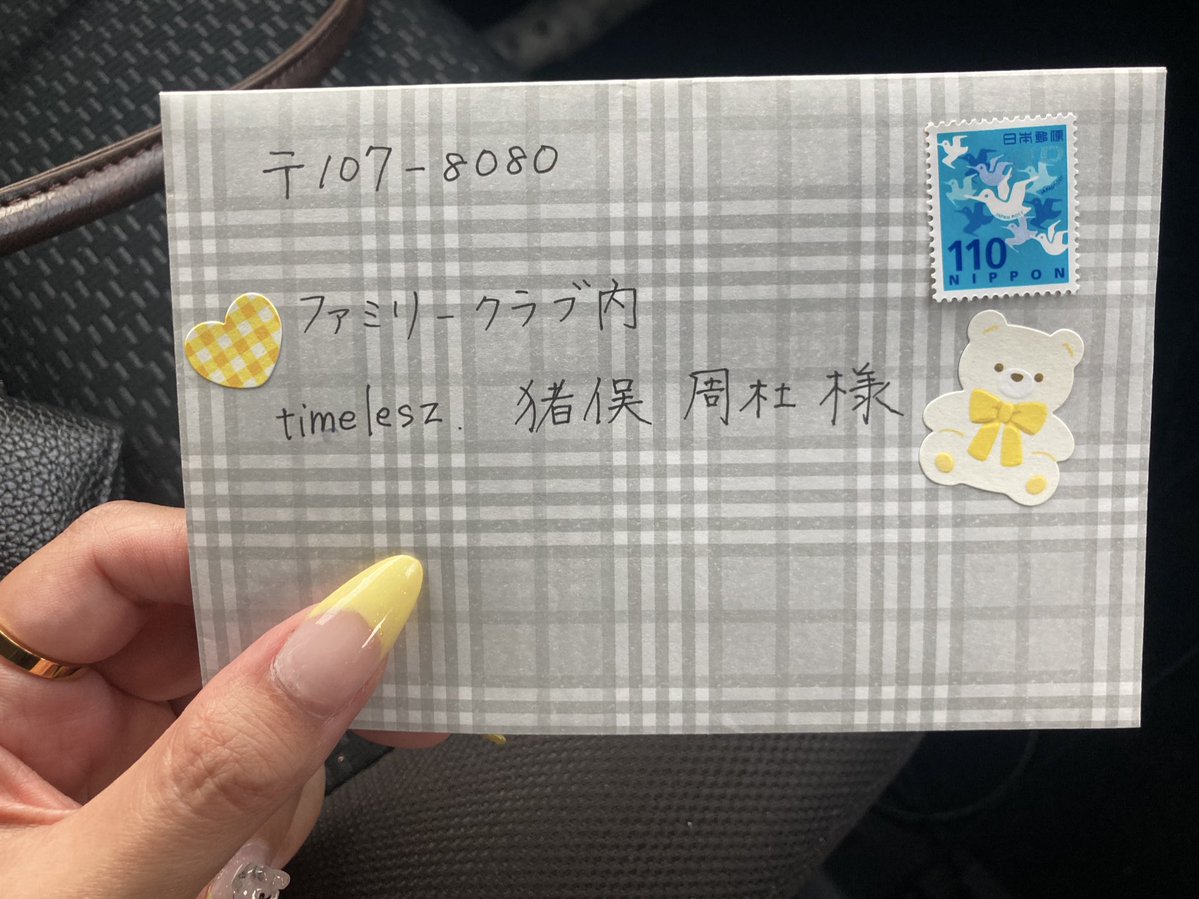 〒107-8080
日本郵便
110
NIPPON
ファミリークラブ内
timelesz. 猪俣 周杜 様